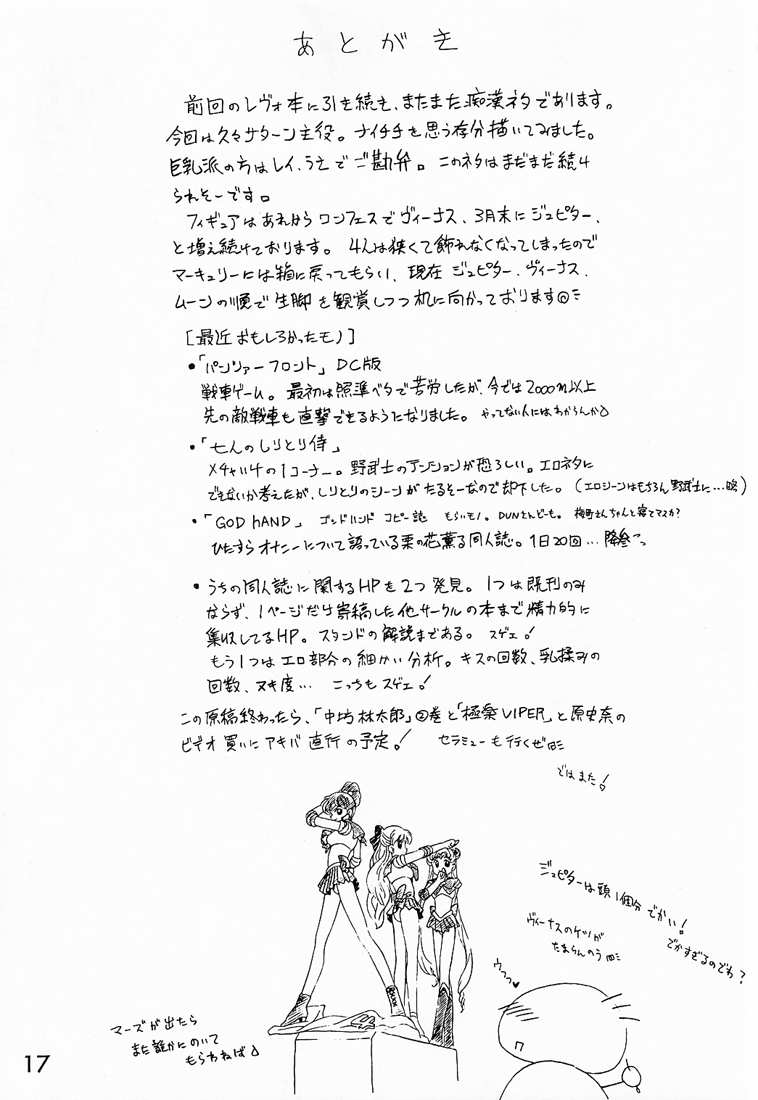 あとがき
前回のレヴォ本に引き続き、またまた痴漢ネタであります。
今回は久々サターン主役。ナイチチを思う存分描いてみました。
巨乳派の方はレイ、うえでご勘弁。このネタはまだまだ続け
られそーです。
フィギュアはあれからワンフェスでヴィーナス、3月末にジュピター、
と増え続けております。4人は狭くて飾れなくなってしまったので
マーキュリーには箱に戻ってもらい、現在ジュピター、ヴィーナス、
ムーンの順で生脚を観賞しつつ机に向かっております
[最近おもしろかったモノ]
•「パンツァーフロント」DC版
戦車ゲーム。最初は照準ベタで苦労したが、今では2000m以上
先の敵戦車も直撃できるようになりました。やってない人にはわからんか
•「七人のしりとり侍」
メチャイケの1コーナー。野武士のテンションが恐ろしい。エロネタに
できないか考えたが、しりとりのシーンがたるそーなので却下した。(エロシーンはもちろん野武士に…略)
•「GOD HAND」ゴッドハンド コピー誌 もらいモノ。DUNさんどーも。 ちゃんと寝てマスか?
ひたすらオナニーについて語っている栗の花薫る同人誌。1日20回…降参っ
•うちの同人誌に関するHPを2つ発見。1つは既刊のみ
ならず、1ページだけ寄稿した他サークルの本まで精力的に
集収してるHP。スタンドの解説まである。スゲェ!
もう1つはエロ部分の細かい分析。キスの回数、乳揉みの
回数、ヌキ度… こっちもスゲェ!
この原稿終わったら、「中坊林太郎」②巻と「極楽VIPER」と原史奈の
ビデオ買いにアキバ直行の予定。! セラミューも行くぜ
ではまた!
ジュピターは頭1個分でかい!
でかすぎるのでわ?
ヴィーナスのケツが
たまらんのう
ウフッ♥
マーズが出たら
また誰かにのいて
もらわねば
17